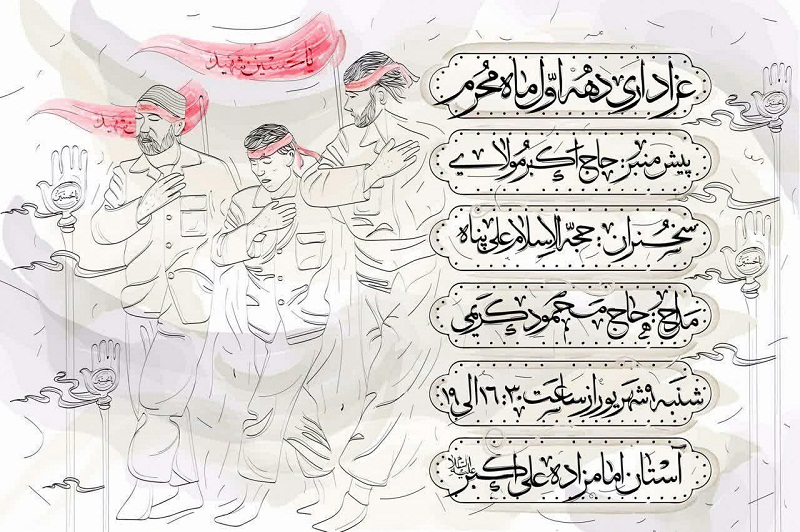 یا حسین شهید
حسین شهید
عزاداری دهه اوّل ماه مُحرم
پیش منبر: حاج اکبر مُولایے
سخنران: حجه الاسلام علی پناه
مداح: حاج محمود کریمی
شنبه ۹ شهریور از ساعت ۱۶:۳۰ الی ۱۹
آستان امامزاده علی اکبر علیه السلام
یا حسین
یا حسین
یا حسین
یا حسین